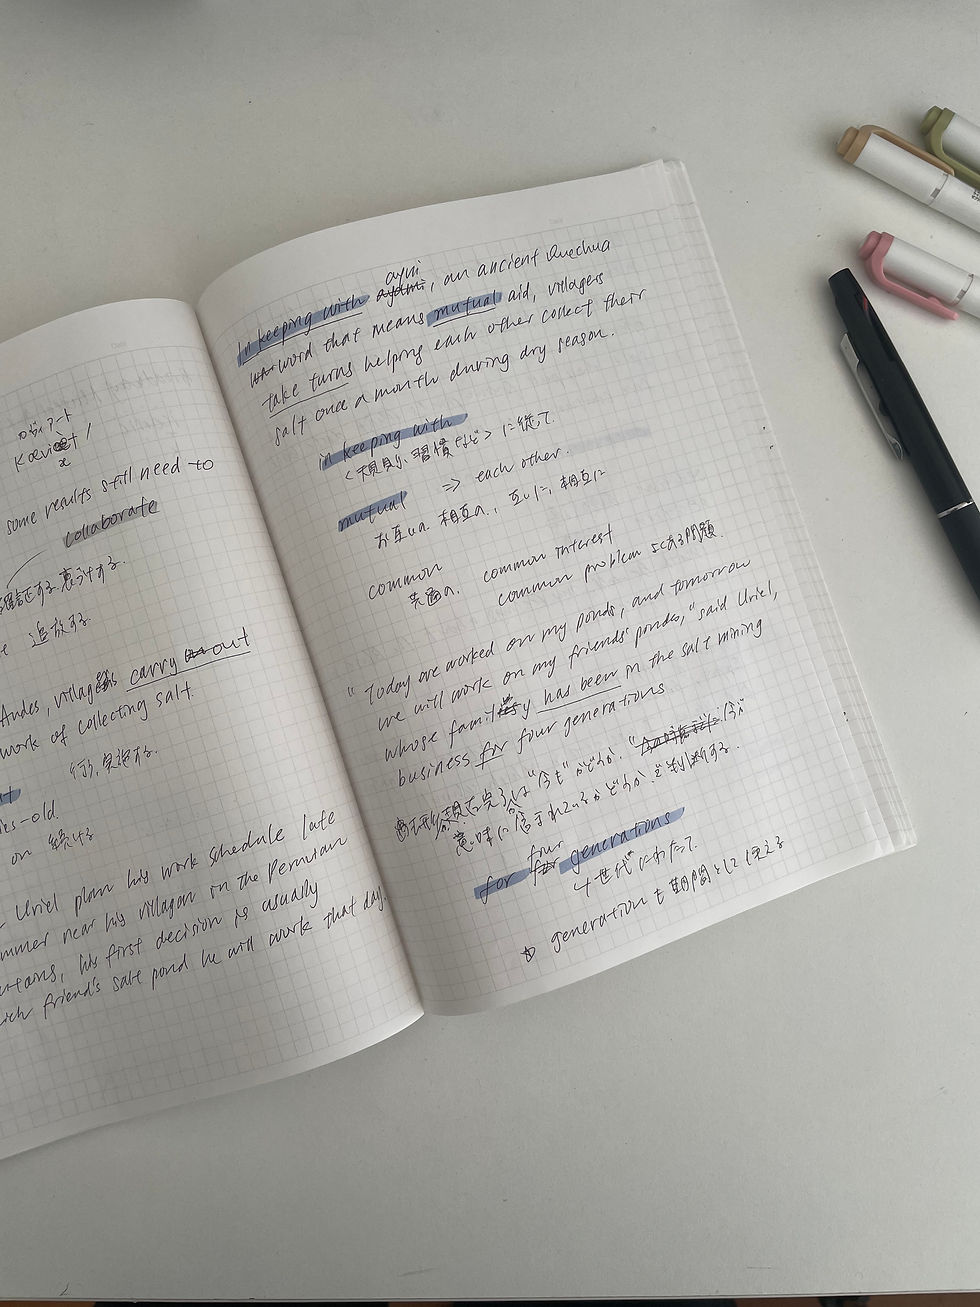 ロヴィアート
some results still need to
collaborate
追放する
Andes, villages carry out
work of collecting salt.
行う, 実施する.
es-old.
on 続ける
Uriel plan his work schedule late
mmer near his villagon on the Peruvian
his first decision is usually
ich friend's salt pond he will work that day.
ayni
In keeping with ayami, an ancient Quechua
word that means mutual aid, villagers
take turns helping each other collect their
salt once a month during dry season.
in keeping with
<規則, 習慣など> に従って
mutual => each other.
お互いの 相互の, 互いに, 相互に
common common interest
共通の. common problem よくある問題.
"Today are worked on my ponds, and tomorrow
we will work on my friends' pondes," said Uriel,
whose family has been in the salt mining
business for four generations
"今も" かどうか.
意味に含まれているかどうか で判断する.
four
for generations
4世代にわたって.
generation も期間として使える